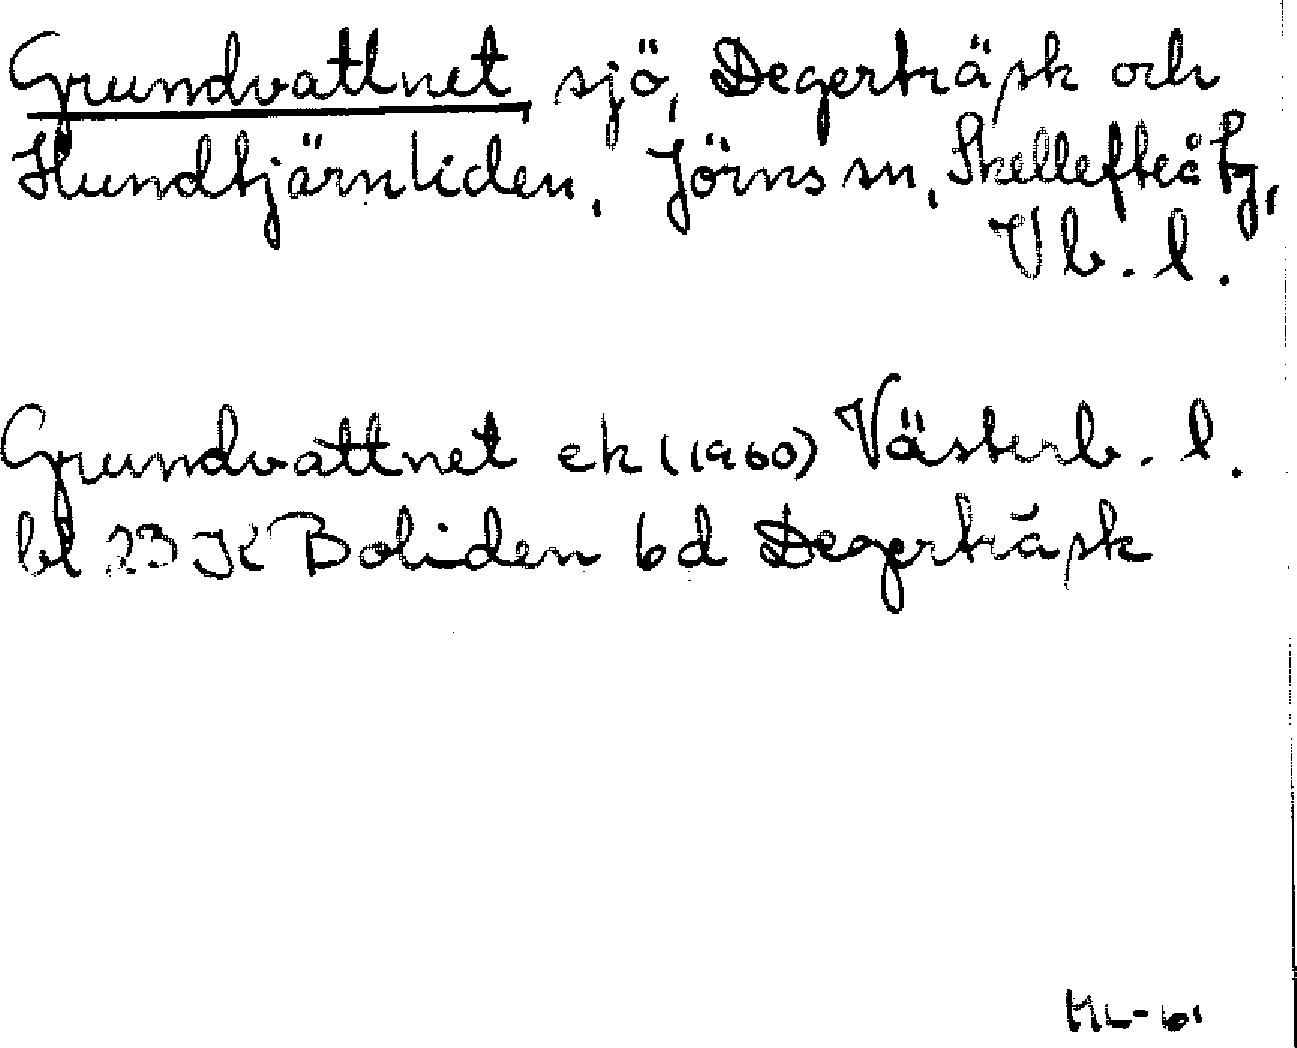 Grundvattnet, sjö, Degerträsk och
Hundtjärnliden, Jörns sn, Skellefteå tg,
Vb. l.
Grundvattnet ek (1960) Västerb. l.
bl 23 K Boliden 6d Degerträsk
HL-61